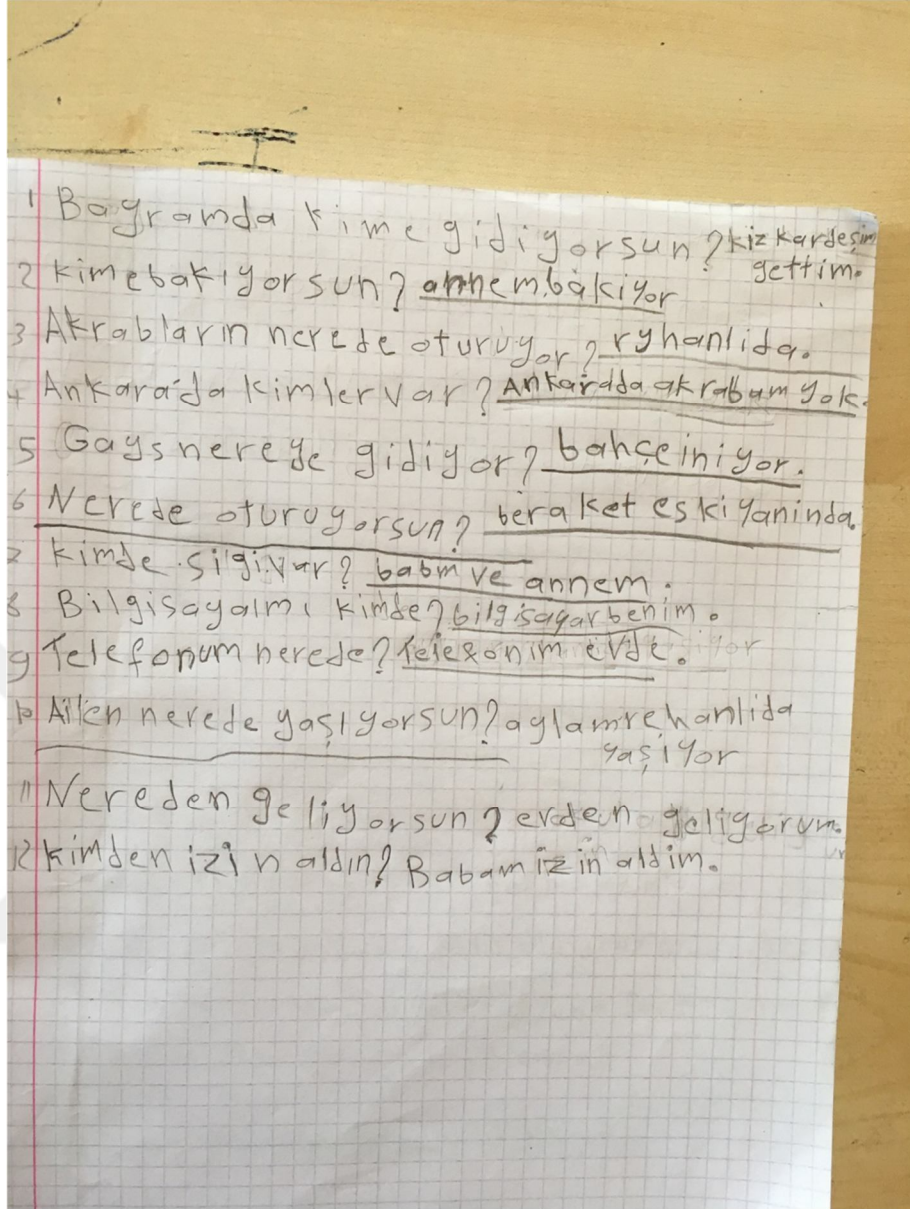 1 Bayramda kime gidiyorsun? kiz kardeşim
gettim.
2 kimebakıyorsun? annem bakiyor
3 Akrabların nerede oturuyor? ryhanlida.
4 Ankara'da kimler var? Ankarada akrabam yok.
5 Gays nereye gidiyor? bahçe iniyor.
6 Nerede oturuyorsun? beraket eski yaninda.
7 kimde silgi var? babm ve annem.
8 Bilgisayalmı kimde? bilgisayar benim.
9 Telefonum nerede? Telefonim evde.
10 Ailen nerede yaşıyorsun? aylam rehanlida
yaşiyor
11 Nereden geliyorsun? evden geliyorum.
12 kimden izin aldın? Babam izin aldim.